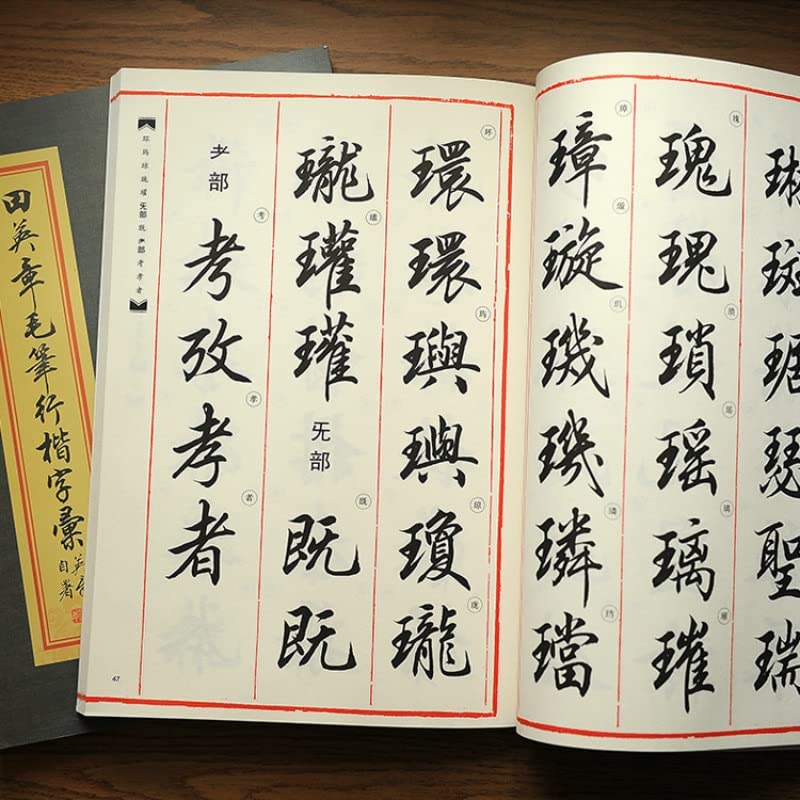 瑟聖瑞
瑰瑰瑣瑶璃璀
瑰
琐
瑶
璃
璋璇璣璣璘璫
璋
璇
玑
璘
珰
環環璵璵瓊瓏
环
玙
琼
珑
瓏瓘瓘
瓘
旡部
既既
既
耂部
考攷孝者
考
孝
者
环玙琼珑瓘 旡部 既 耂部 考孝者
47
田英章毛筆行楷字彙
英章
自署